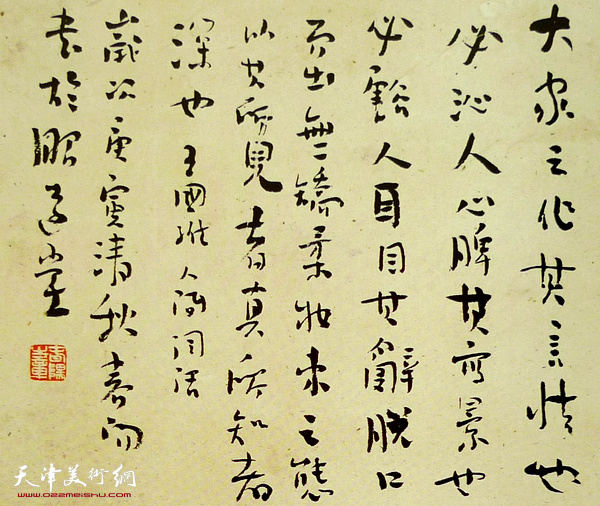 大家之作其言情也
必沁人心脾其写景也
必豁人耳目其辭脱口
而出無矯柔妝束之態
以其所見者真所知者
深也王國維人间词话
歲次庚寅清秋
書於
天津美術網
www.022meishu.com